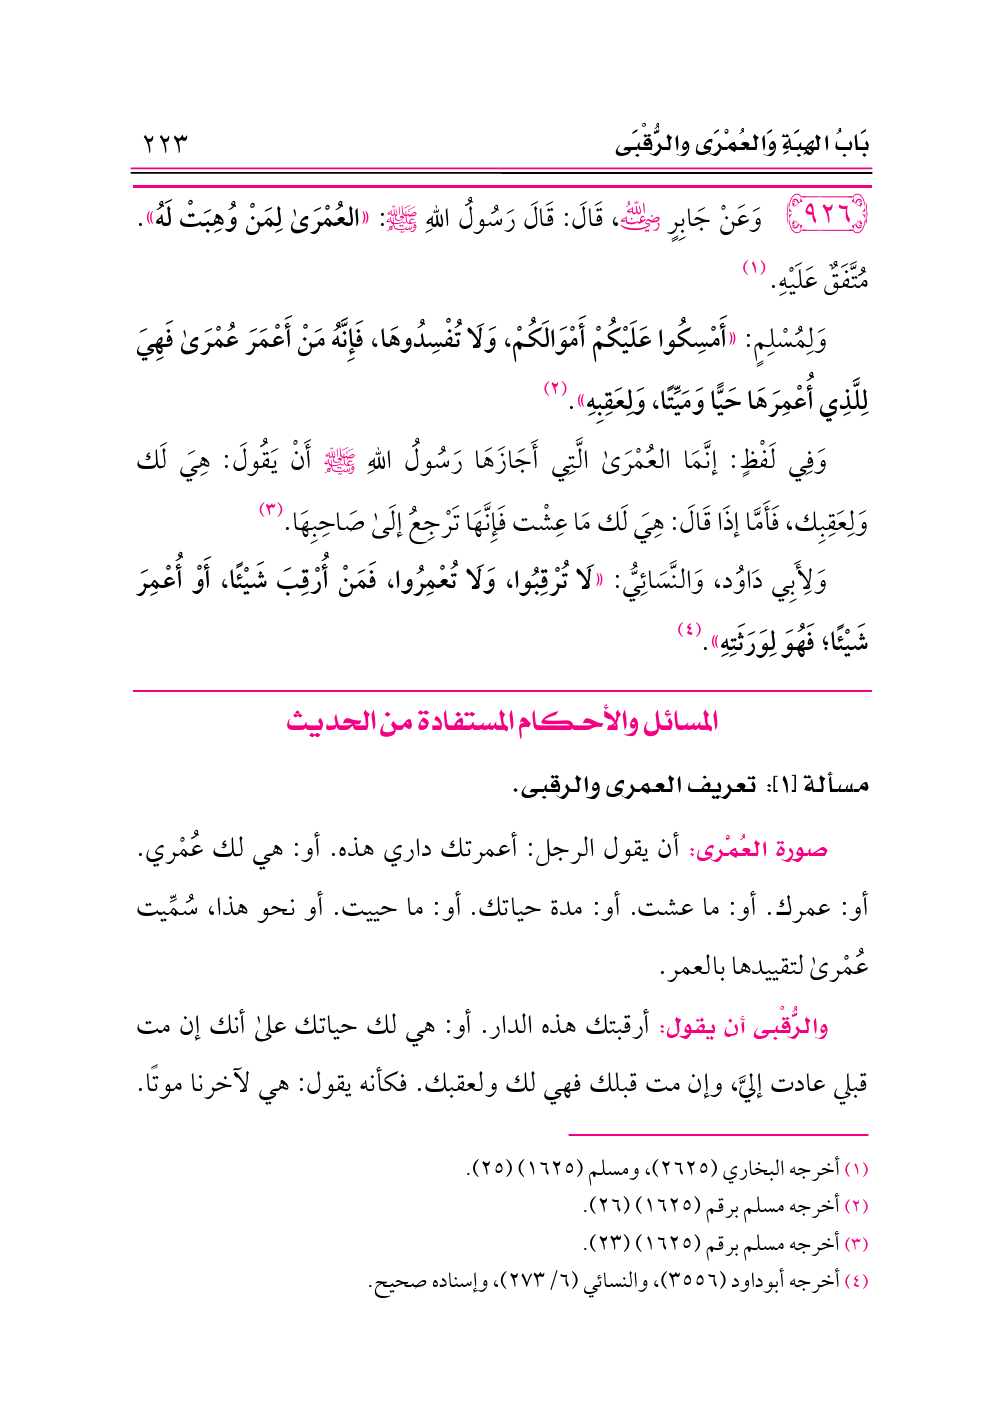 بَابُ الهِبَةِ وَالعُمْرَى والرُّقْبَى ٢٢٣
٩٢٦ وَعَنْ جَابِرٍ رضي الله عنه، قَالَ: قَالَ رَسُولُ اللهِ ﷺ: «العُمْرَىٰ لِمَنْ وُهِبَتْ لَهُ».
مُتَّفَقٌ عَلَيْهِ. (١)
وَلِمُسْلِمٍ: «أَمْسِكُوا عَلَيْكُمْ أَمْوَالَكُمْ، وَلَا تُفْسِدُوهَا، فَإِنَّهُ مَنْ أَعْمَرَ عُمْرَىٰ فَهِيَ
لِلَّذِي أُعْمِرَهَا حَيًّا وَمَيِّتًا، وَلِعَقِبِهِ».(٢)
وَفِي لَفْظٍ: إنَّمَا العُمْرَىٰ الَّتِي أَجَازَهَا رَسُولُ اللهِ ﷺ أَنْ يَقُولَ: هِيَ لَك
وَلِعَقِبِك، فَأَمَّا إذَا قَالَ: هِيَ لَك مَا عِشْت فَإِنَّهَا تَرْجِعُ إلَىٰ صَاحِبِهَا.(٣)
وَلِأَبِي دَاوُد، وَالنَّسَائِيُّ: «لَا تُرْقِبُوا، وَلَا تُعْمِرُوا، فَمَنْ أُرْقِبَ شَيْئًا، أَوْ أُعْمِرَ
شَيْئًا؛ فَهُوَ لِوَرَثَتِهِ».(٤)
المسائل والأحكام المستفادة من الحديث
مسألة [١]: تعريف العمرى والرقبى.
صورة العُمْرى: أن يقول الرجل: أعمرتك داري هذه. أو: هي لك عُمْري.
أو: عمرك. أو: ما عشت. أو: مدة حياتك. أو: ما حييت. أو نحو هذا، سُمِّيت
عُمْرىٰ لتقييدها بالعمر.
والرُّقْبى أن يقول: أرقبتك هذه الدار. أو: هي لك حياتك علىٰ أنك إن مت
قبلي عادت إليَّ، وإن مت قبلك فهي لك ولعقبك. فكأنه يقول: هي لآخرنا موتًا.
(١) أخرجه البخاري (٢٦٢٥)، ومسلم (١٦٢٥) (٢٥).
(٢) أخرجه مسلم برقم (١٦٢٥) (٢٦).
(٣) أخرجه مسلم برقم (١٦٢٥) (٢٣).
(٤) أخرجه أبوداود (٣٥٥٦)، والنسائي (٦/ ٢٧٣)، وإسناده صحيح.